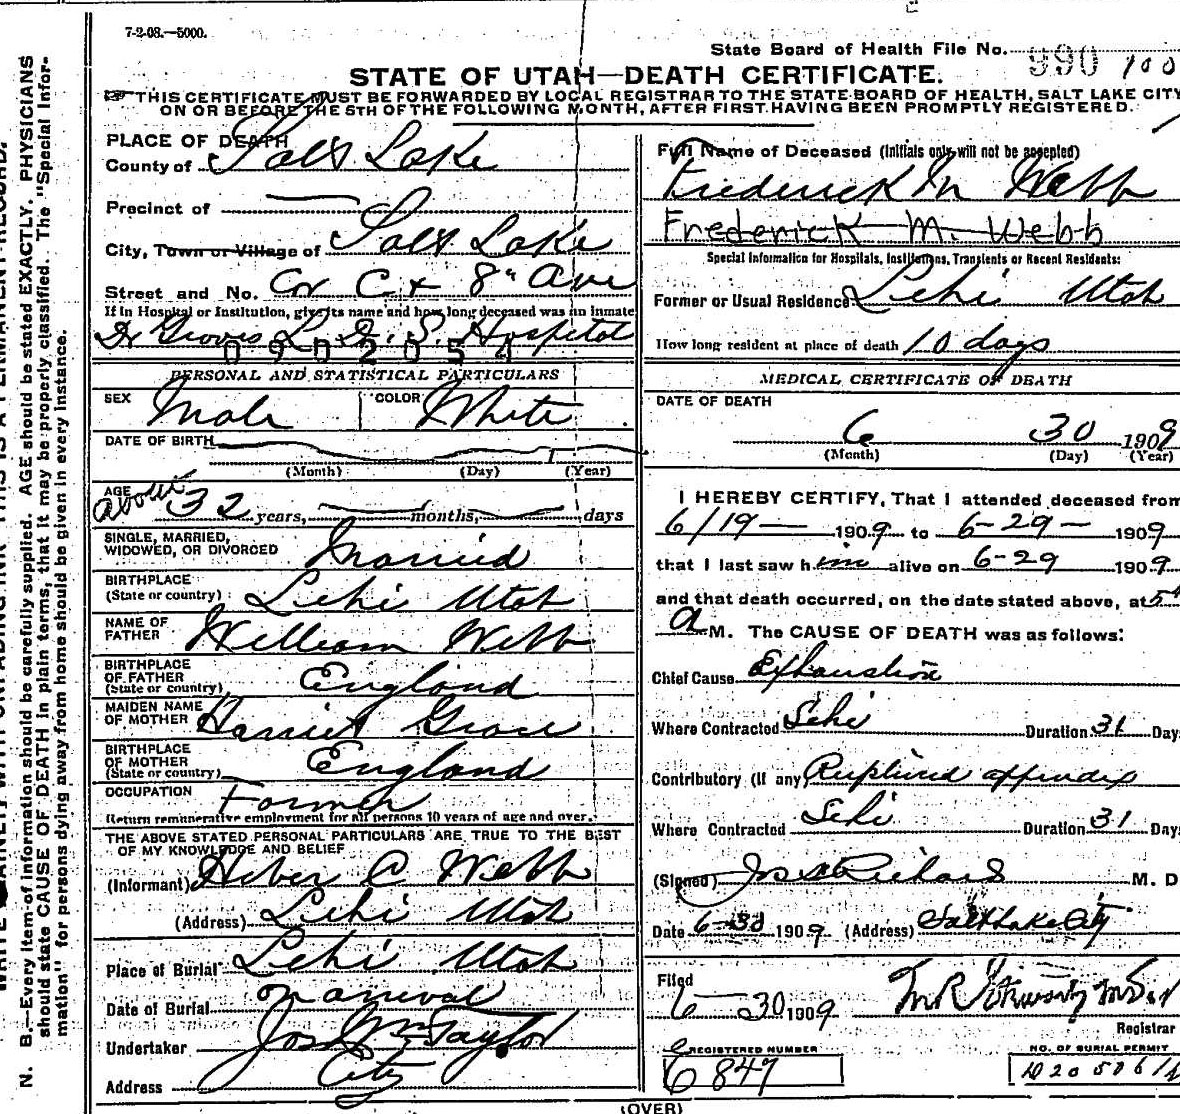 7-2-08.—5000.
State Board of Health File No. 990 100
STATE OF UTAH—DEATH CERTIFICATE.
THIS CERTIFICATE MUST BE FORWARDED BY LOCAL REGISTRAR TO THE STATE BOARD OF HEALTH, SALT LAKE CITY
ON OR BEFORE THE 5TH OF THE FOLLOWING MONTH, AFTER FIRST HAVING BEEN PROMPTLY REGISTERED.
PLACE OF DEATH
County of Salt Lake
Precinct of
City, Town or Village of Salt Lake
Street and No. Cor C & 8th Ave
If in Hospital or Institution, give its name and how long deceased was an inmate
Dr Groves L. D. S. Hospital
0902054
PERSONAL AND STATISTICAL PARTICULARS
SEX Male COLOR White
DATE OF BIRTH
(Month) (Day) (Year)
AGE about 32 years, months, days
SINGLE, MARRIED,
WIDOWED, OR DIVORCED Married
BIRTHPLACE
(State or country) Lehi Utah
NAME OF
FATHER William Webb
BIRTHPLACE
OF FATHER
(State or country) England
MAIDEN NAME
OF MOTHER Harriet Grace
BIRTHPLACE
OF MOTHER
(State or country) England
OCCUPATION Farmer
Return remunerative employment for all persons 10 years of age and over.
THE ABOVE STATED PERSONAL PARTICULARS ARE TRUE TO THE BEST
OF MY KNOWLEDGE AND BELIEF
(Informant) Heber C Webb
(Address) Lehi Utah
Place of Burial Lehi Utah
Date of Burial Removal
Undertaker Jos Wm Taylor
Address City
Full Name of Deceased (Initials only will not be accepted)
Frederick M Webb
Frederick M. Webb
Special Information for Hospitals, Institutions, Transients or Recent Residents:
Former or Usual Residence Lehi Utah
How long resident at place of death 10 days
MEDICAL CERTIFICATE OF DEATH
DATE OF DEATH
6 30 1909
(Month) (Day) (Year)
I HEREBY CERTIFY, That I attended deceased from
6/19— 1909 to 6-29— 1909
that I last saw him alive on 6-29 1909
and that death occurred, on the date stated above, at 5
a M. The CAUSE OF DEATH was as follows:
Chief Cause Exhaustion
Where Contracted Lehi Duration 31 Day
Contributory (if any) Ruptured appendix
Where Contracted Lehi Duration 31 Day
(Signed) Jos S Richards M. D
Date 6-30 1909 (Address) Salt Lake City
Filed
6—30 1909 M R
Registrar
REGISTERED NUMBER NO. OF BURIAL PERMIT
6847
(OVER)
N. B.—Every item of information should be carefully supplied. AGE should be stated EXACTLY. PHYSICIANS
should state CAUSE OF DEATH in plain terms, that it may be properly classified. The "Special Infor-
mation" for persons dying away from home should be given in every instance.